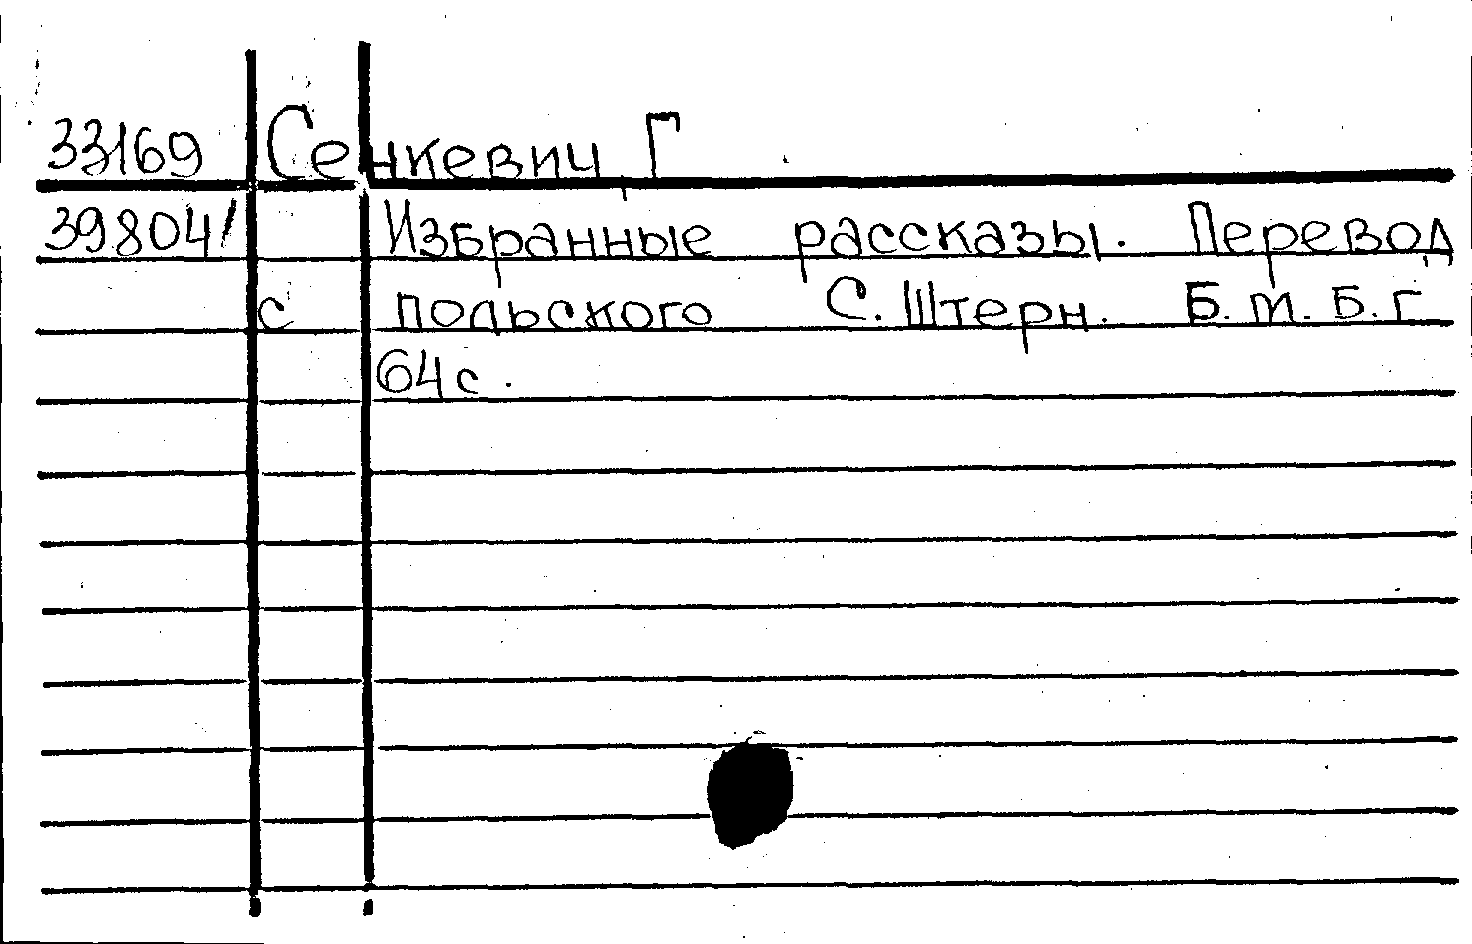 33169 Сенкевич Г
39804/ Избранные рассказы. Перевод
с польского С. Штерн. Б.м. Б.г
64с.